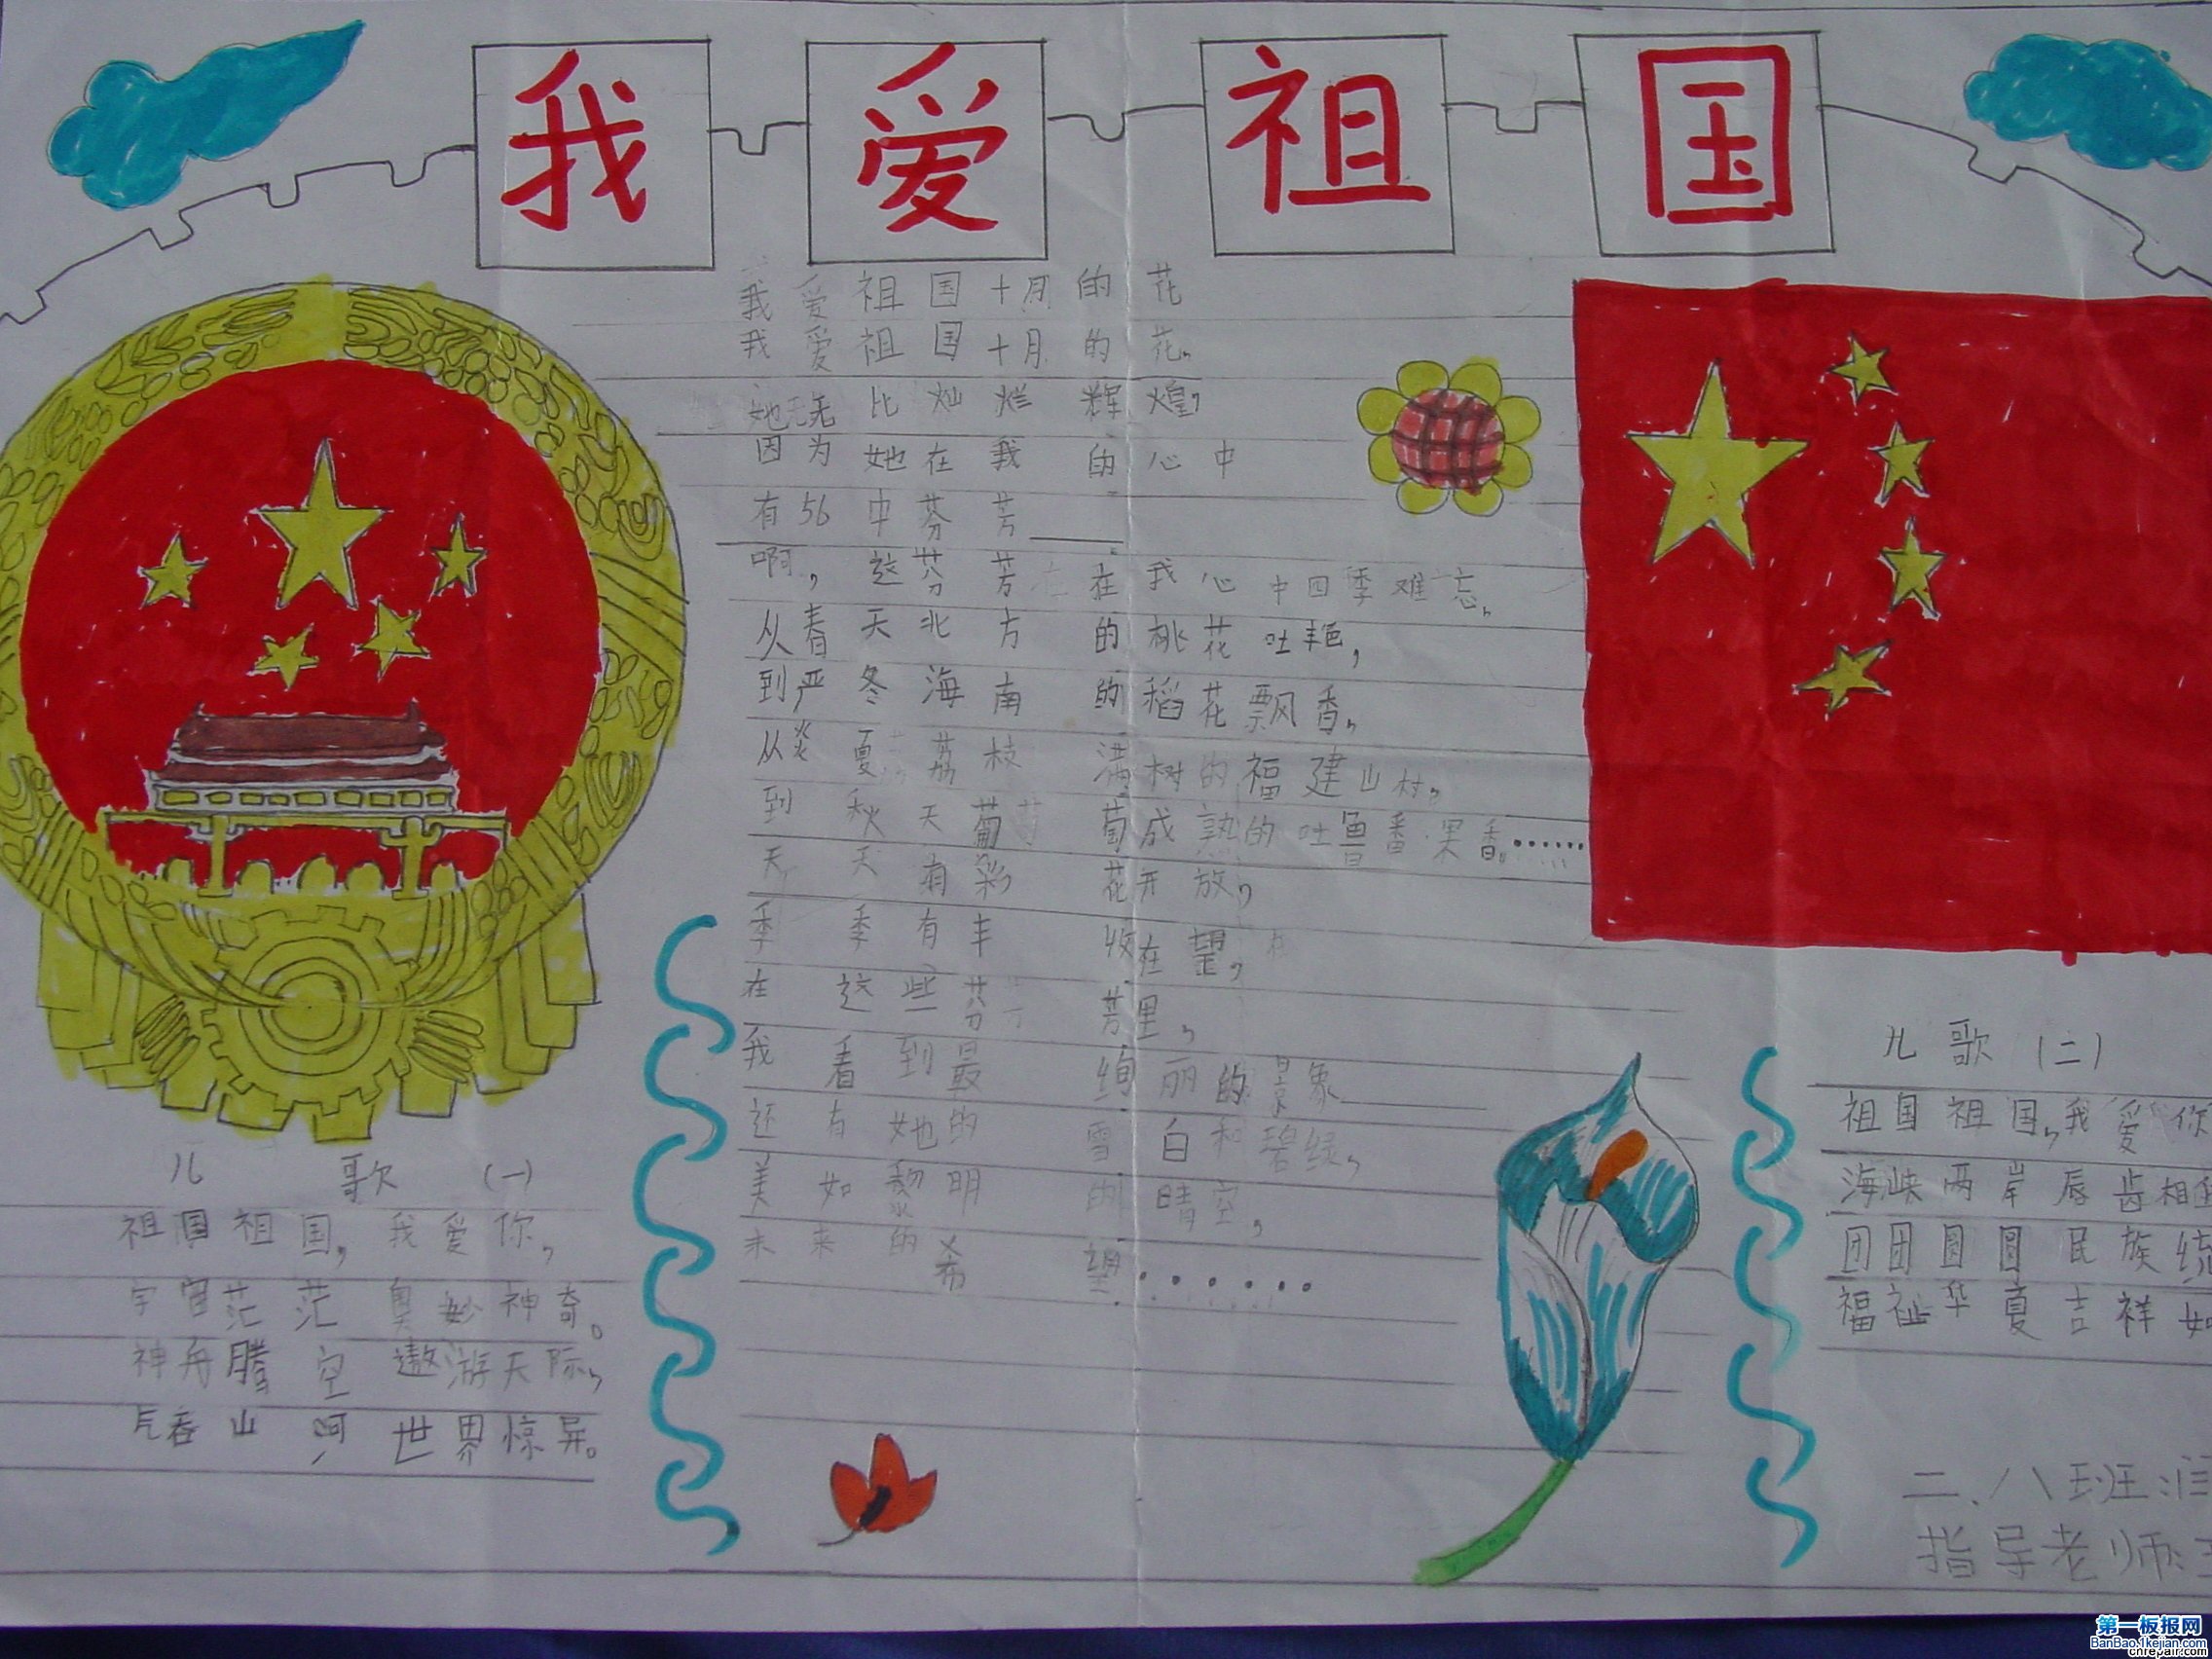 我爱祖国
我爱祖国十月的花
我爱祖国十月的花,
她无比灿烂辉煌,
因为她在我的心中
有56中芬芳——
啊,这芬芳在我心中四季难忘,
从春天北方的桃花吐艳,
到严冬海南的稻花飘香,
从炎夏荔枝满树的福建山村,
到秋天葡萄成熟的吐鲁番果香……
天天有彩花开放,
季季有丰收在望,
在这些芬芳里,
我看到最绚丽的景象——
还有她的雪白和碧绿,
美如黎明的晴空,
未来的希望......
儿歌(一)
祖国祖国,我爱你,
宇宙茫茫奥妙神奇。
神舟腾空遨游天际,
气吞山河世界惊异。
儿歌(二)
祖国祖国,我爱你
海峡两岸唇齿相
团团圆圆民族
福祉华夏吉祥如
二、八班
指导老师:
第一板报网
BanBao.1kejian.com
cnrepair.com